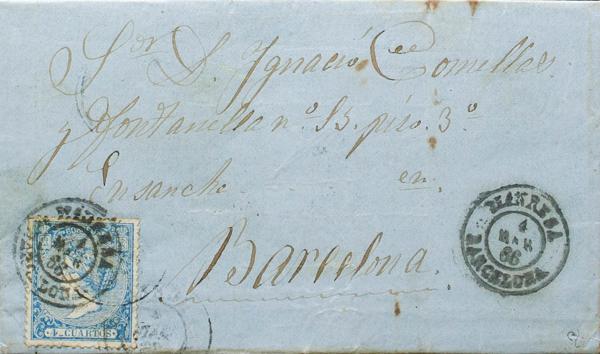 Sor D. Ignació Comellas
y Fontanella nº 15. piso. 3º
Ensanche en
Barcelona.
MANRESA
1
MAR
66
BARCELONA
MANRESA
1
66
4 CUARTOS